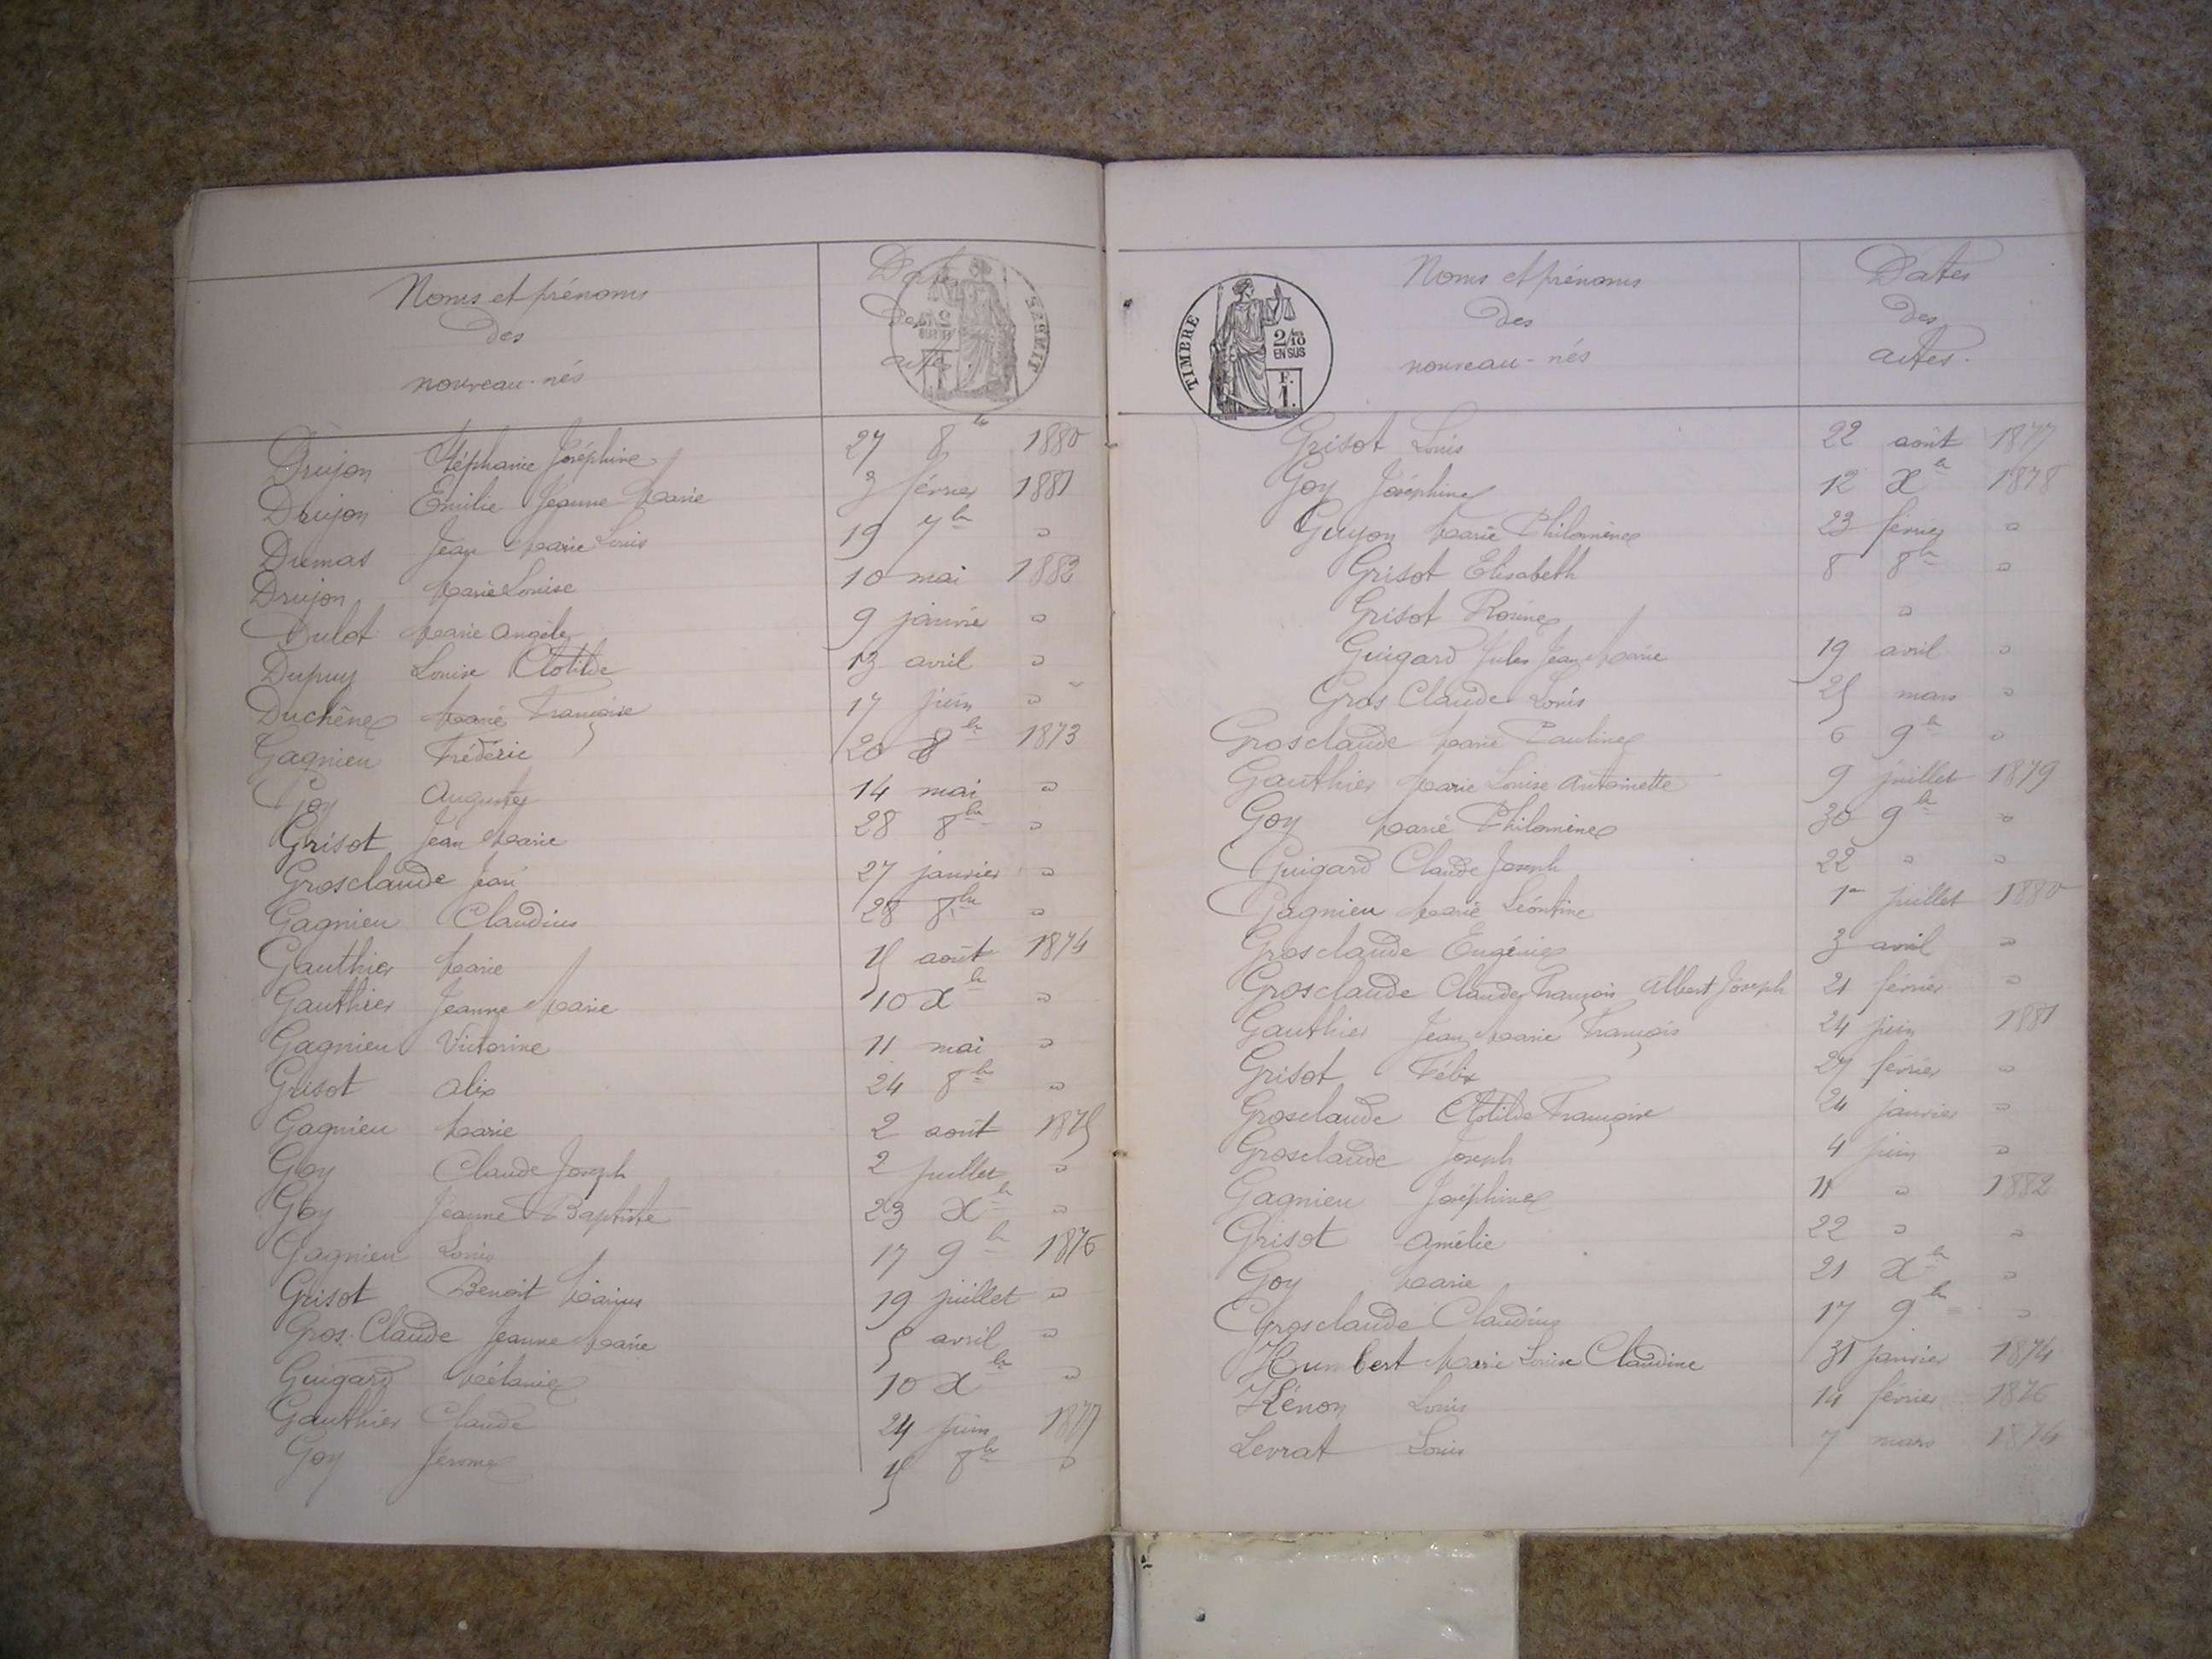 Noms et prénoms
des
nouveau-nés
Dates
des
actes
Drujon Stéphanie Joséphine 27 8bre 1880
Drujon Emilie Jeanne Marie 3 février 1881
Dumas Jean Marie Louis 19 7bre "
Drujon Marie Louise 10 mai 1882
Dulot Marie Angèle 9 janvier "
Dupuy Louise Clotilde 13 avril "
Duchêne Marie Françoise 17 juin "
Gagnieu Frédéric 20 8bre 1873
Goy Auguste 14 mai "
Grisot Jean Marie 28 8bre "
Grosclaude Jean 27 janvier "
Gagnieu Claudius 28 8bre "
Gauthier Marie 15 août 1874
Gauthier Jeanne Marie 10 Xbre "
Gagnieu Victorine 11 mai "
Grisot Alix 24 8bre "
Gagnieu Marie 2 août 1875
Goy Claude Joseph 2 juillet "
Goy Jeanne Baptiste 23 Xbre "
Gagnieu Louis 17 9bre 1876
Grisot Benoit Marius 19 juillet "
Gros Claude Jeanne Marie 5 avril "
Guigard Mélanie 10 Xbre "
Gauthier Claude 24 juin 1877
Goy Jérome 15 8bre "
TIMBRE
2/10
EN SUS
F.
1.
Noms et prénoms
des
nouveau-nés
Dates
des
actes.
Grisot Louis 22 août 1877
Goy Joséphine 12 Xbre 1878
Guyon Marie Philomène 23 février "
Grisot Elisabeth 8 8bre "
Grisot Rosine "
Guigard Jules Jean Marie 19 avril "
Gros Claude Louis 25 mars "
Grosclaude Marie Pauline 6 9bre "
Gauthier Marie Louise Antoinette 9 juillet 1879
Goy Marie Philomène 30 9bre "
Guigard Claude Joseph 22 " "
Gagnieu Marie Léontine 1er juillet 1880
Grosclaude Eugénie 3 avril "
Grosclaude Claude François Albert Joseph 21 février "
Gauthier Jean Marie François 24 juin 1881
Grisot Félix 27 février "
Grosclaude Clotilde Françoise 24 janvier "
Grosclaude Joseph 4 juin "
Gagnieu Joséphine 11 " 1882
Grisot Amélie 22 " "
Goy Marie 21 Xbre "
Grosclaude Claudius 17 9bre "
Humbert Marie Louise Claudine 31 janvier 1874
Hénon Louis 14 février 1876
Levrat Louis 7 mars 1874